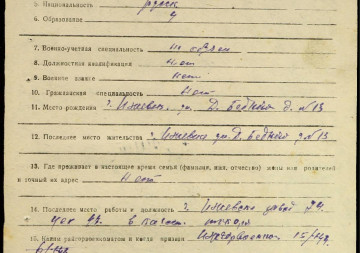 5. Национальность русск
6. Образование 4
7. Военно-учетная специальность не обучен
8. Должностная квалификация Нет
9. Военное звание Нет
10. Гражданская специальность Нет
11. Место рождения г. Ижевск, ул. Д. Бедного д. №13
12. Последнее место жительства г. Ижевск ул. Д. Бедного д. №13
13. Где проживает в настоящее время семья (фамилия, имя, отчество) жены или родителей
и точный их адрес Нет
14. Последнее место работы и должность г. Ижевск завод 74
цех 23. в
15. Каким райвоенкоматом и когда призван